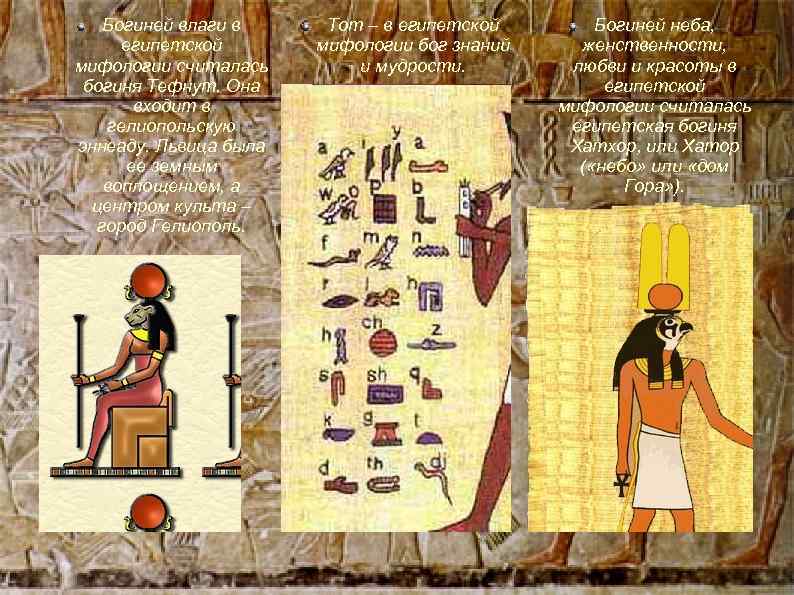 Богиней влаги в
египетской
мифологии считалась
богиня Тефнут. Она
входит в
гелиопольскую
эннеаду, Львица была
ее земным
воплощением, а
центром культа –
город Гелиополь.
Тот – в египетской
мифологии бог знаний
и мудрости.
a i y a
w o p b
f m n
r l h
h ch z
s sh q
k g t
d th dj
Богиней неба,
женственности,
любви и красоты в
египетской
мифологии считалась
египетская богиня
Хатхор, или Хатор
(«небо» или «дом
Гора» ).